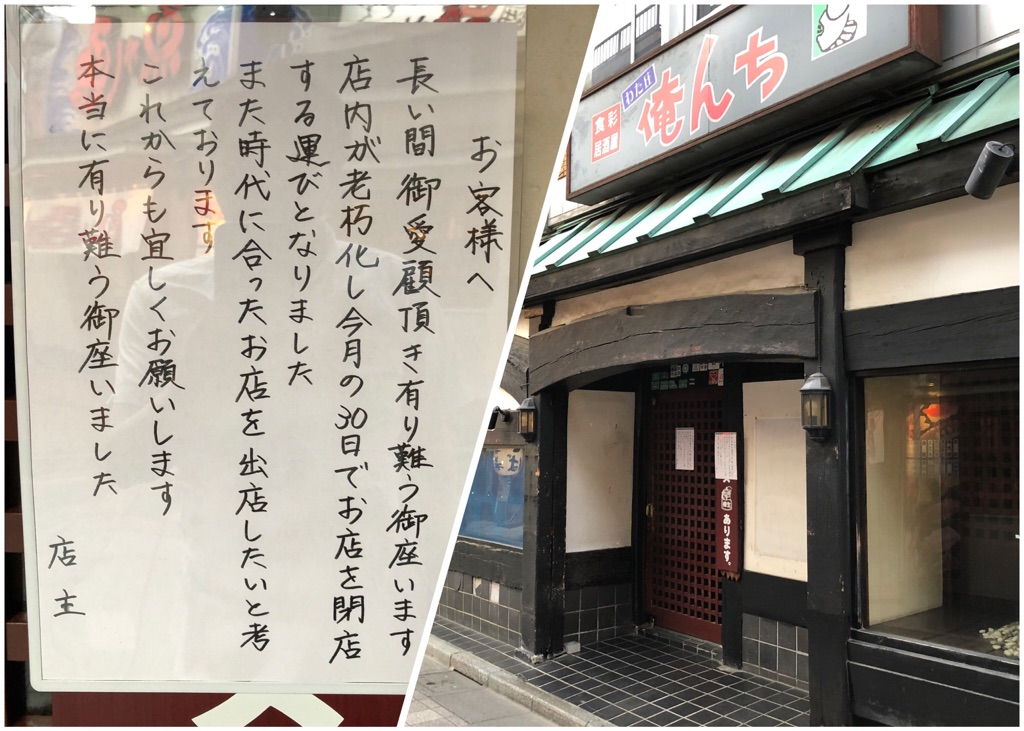 お客様へ
長い間御愛顧頂き有り難う御座います
店内が老朽化し今月の30日でお店を閉店
する運びとなりました
また時代に合ったお店を出店したいと考
えております
これからも宜しくお願いします
本当に有り難う御座いました
店主
食彩
居酒屋
わた酉
俺んち
あります。